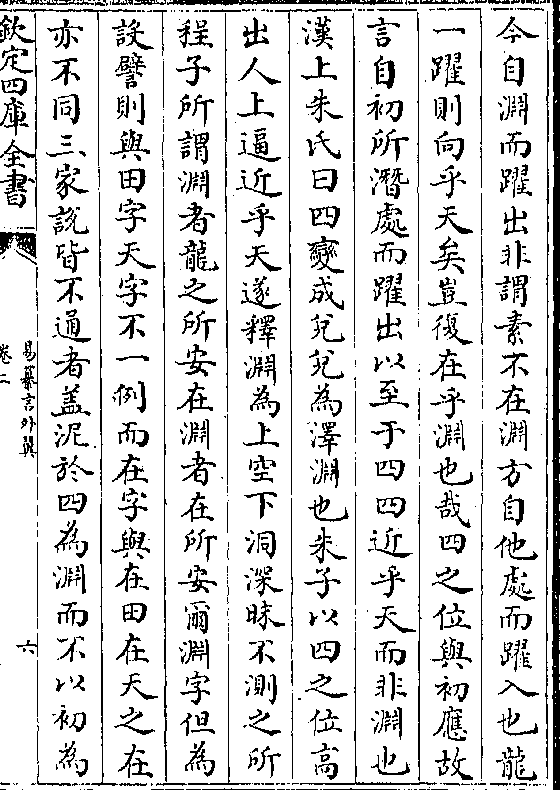 今自淵而躍出非謂素不在淵方自他處而躍入也龍
一躍則向乎天矣豈復在乎淵也哉四之位與初應故
言自初所潛處而躍出以至于四四近乎天而非淵也
漢上朱氏曰四變成兊兊為澤淵也朱子以四之位髙
出人上逼近乎天遂釋淵為上空下洞深昧不測之所
程子所謂淵者龍之所安在淵者在所安爾淵字但為
設譬則與田字天字不一例而在字與在田在天之在
亦不同三家說皆不通者盖泥於四為淵而不以初為
欽定四庫全書
易纂言外翼
卷二
六